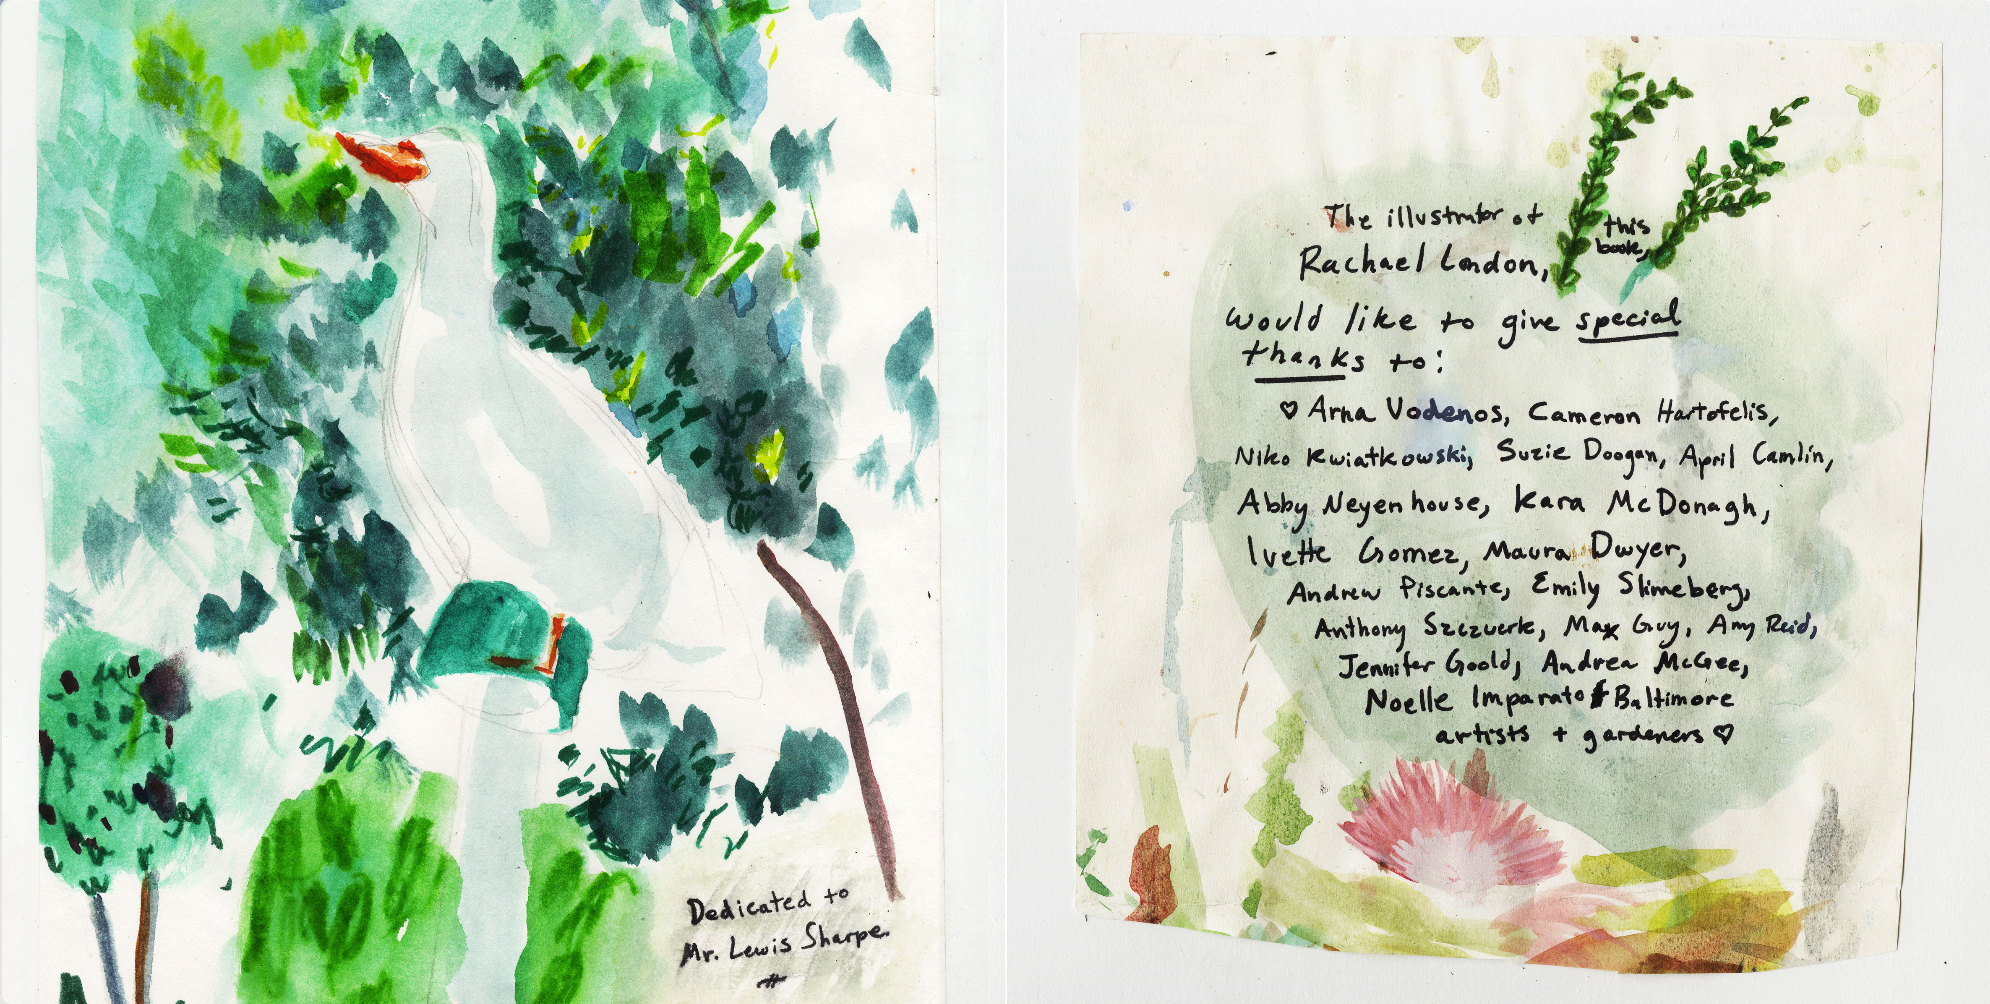 Dedicated to
Mr. Lewis Sharpe
The illustrator of
this
book,
Rachael London,
would like to give special
thanks to:
♡ Arna Vodenos, Cameron Hartofelis,
Niko Kwiatkowski, Suzie Doogan, April Camlin,
Abby Neyenhouse, Kara McDonagh,
Ivette Gomez, Maura Dwyer,
Andrew Piscante, Emily Slimeberg,
Anthony Szczuerk, Max Guy, Amy Reid,
Jennifer Goold, Andrea McGee,
Noelle Imparato & Baltimore
artists + gardeners ♡